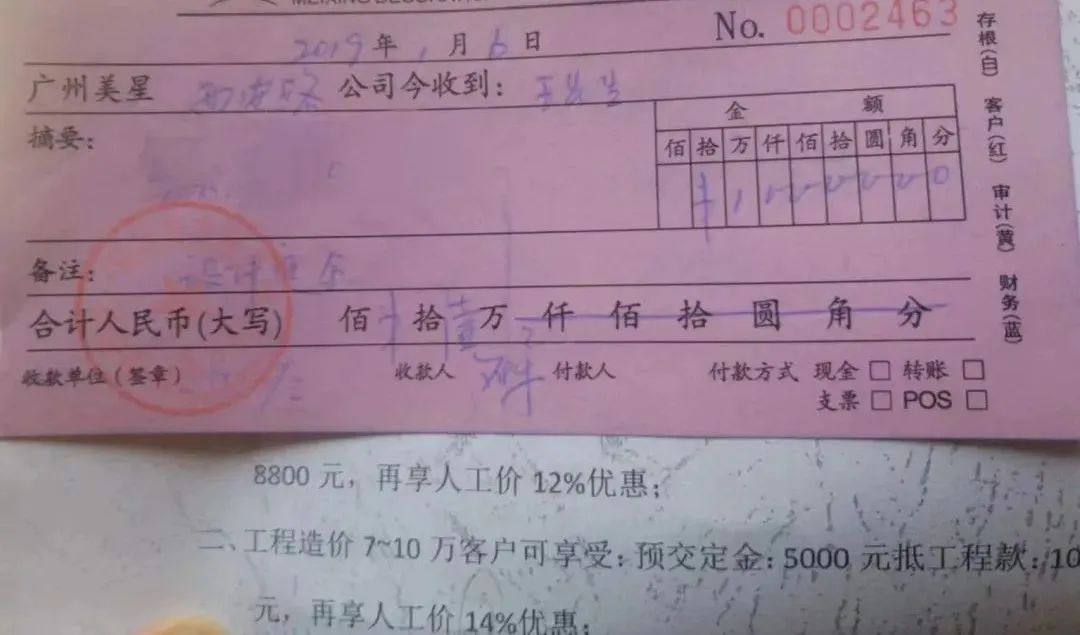 No. 0002463
2019年1月6日
广州美星 公司今收到: 王先生
摘要:
金额
佰拾万仟佰拾圆角分
备注: 设计定金
合计人民币(大写) 佰拾壹万仟佰拾圆角分
收款单位(签章) 收款人 付款人 付款方式 现金□ 转账□
支票□ POS□
存根(白) 客户(红) 审计(黄) 财务(蓝)
8800 元，再享人工价 12%优惠；
二、工程造价 7~10 万客户可享受：预交定金：5000 元抵工程款：10
元，再享人工价 14%优惠；